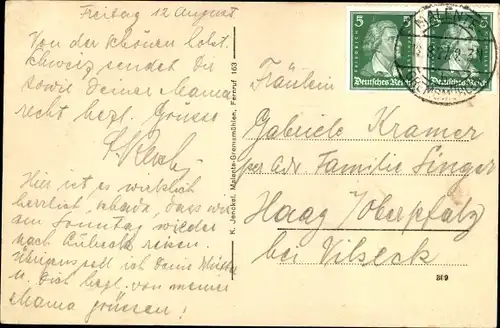 Freitag 12 August
Von der schönen holst.
Schweiz sendet Dir
sowie Deiner Mama
recht herzl. Grüsse
Hier ist es wirklich
herrlich, schade, dass wir
am Sonntag wieder
nach Lübeck reisen.
Übrigens soll ich Deine Mutter
u. Dich herzl. von meiner
Mama grüssen!
K. Jenckel, Malente-Gremsmühlen, Fernruf 163
5 5
FRIEDRICH V.
Deutsches Reich Deutsches Reich
MALENTE
GREMSMÜHLEN
Fräulein
Gabriele Kramer
per Adr. Familie Singer
Haag/Oberpfalz
bei Vilseck